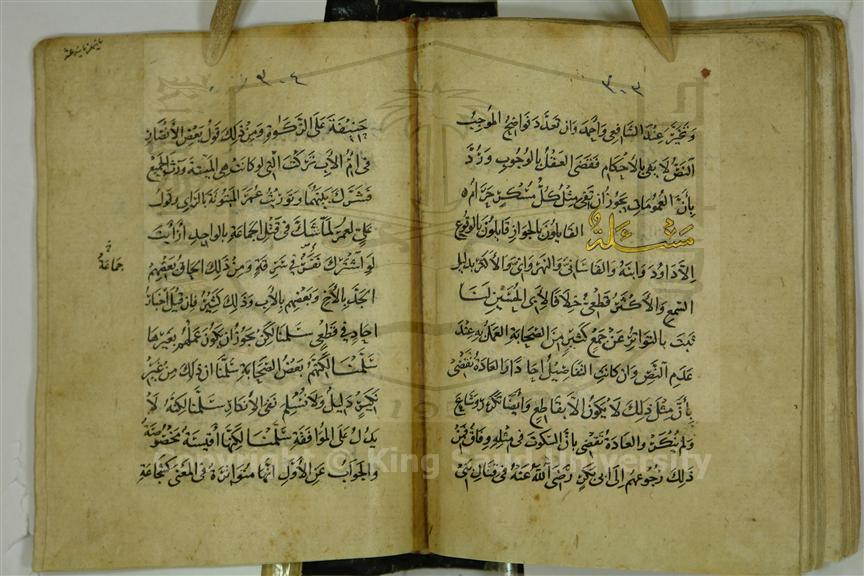 ٣٠٣
وتخير عند الشافعي واحمد وان تعدد نواضح الموجب
النص لا يفي بالاحكام فقضى العقل بالوجوب ورد
بان العمومات يجوز ان تفي مثل كل مسكر حرام ٥
مسئلة القايلون بالجواز قايلون بالوقوع
الا داود وابنه والقاساني والنهرواني والاكثر بدليل
السمع والاكثر قطعي خلافا لابي الحسين لنا
ثبت بالتواتر عن جمع كثير من الصحابة العمل به عند
عدم النص وان كانت التفاصيل احادا والعادة تقضي
بان مثل ذلك لا يكون الا بقاطع وايضا تكرر وشاع
ولم ينكر والعادة تقضي بان السكوت في مثله وفاق فمن
ذلك رجوعهم الى ابي بكر رضي الله عنه في قتال بني
٣٠٤
حنيفة على الزكوة ومن ذلك قول بعض الانصار
في ام الاب تركت التي لو كانت هي الميتة ورث الجميع
فشرك بينهما وتوريث عمر المبتوتة بالراي وقول
علي لعمر لما شك في قتل الجماعة بالواحد ارايت
لو اشترك نفر في سرقة ومن ذلك الحاق بعضهم
الجد بالاخ وبعضهم بالاب وذلك كثير فان قيل اخبار
احاد في قطعي سلمنا لكن يجوز ان يكون عملهم بغيرها
سلمنا لكنهم بعض الصحابة سلمنا ان ذلك من غير
نكير دليل ولا نسلم نفي الانكار سلمنا لكنه لا
يدل على الموافقة سلمنا لكنها اقيسة مخصوصة
والجواب عن الاول انها متواترة في المعنى كشجاعة
جماعة
Copyright © King Saud University